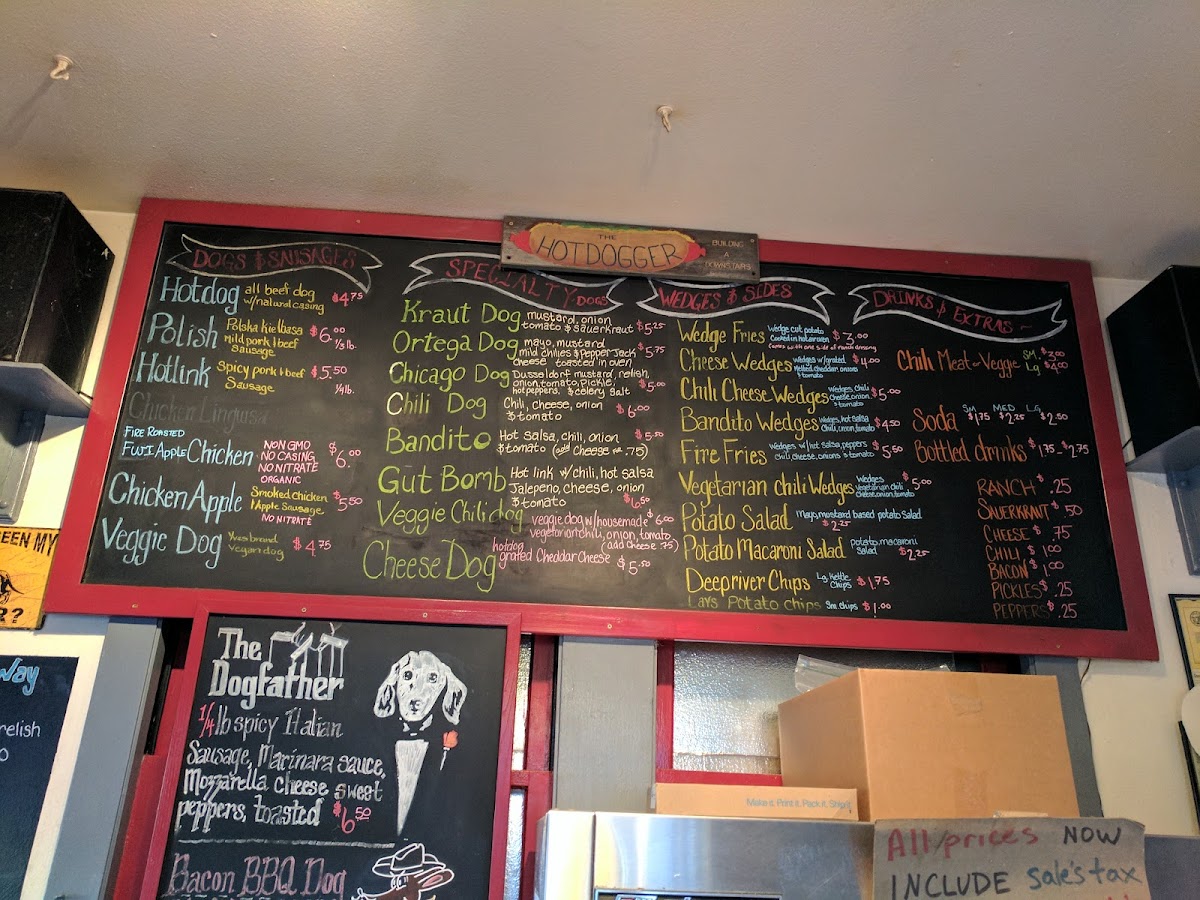 THE
HOTDOGGER
BUILDING
A
DOWNSTAIRS
DOGS & SAUSAGES
Hotdog all beef dog w/natural casing $4.75
Polish Polska Kielbasa mild pork & beef sausage $6.00 1/3 lb.
Hotlink Spicy pork & beef Sausage $5.50 1/4 lb.
Chicken Linguisa
FIRE ROASTED
FUJI Apple Chicken NON GMO NO CASING NO NITRATE ORGANIC $6.00
Chicken Apple Smoked chicken & Apple Sausage NO NITRATE $5.50
Veggie Dog Yves brand vegan dog $4.75
SPECIALTY-DOGS
Kraut Dog mustard, onion tomato & sauerkraut $5.25
Ortega Dog mayo, mustard mild chilies & Pepper Jack cheese toasted in oven $5.75
Chicago Dog Dusseldorf mustard, relish, onion, tomato, pickle, hot peppers, & celery salt $5.00
Chili Dog Chili, cheese, onion & tomato $6.00
Bandito Hot salsa, chili, onion & tomato (add cheese .75) $5.50
Gut Bomb Hot link w/chili, hot salsa Jalepeno, cheese, onion & tomato $6.50
Veggie Chili dog veggie dog w/housemade vegetarian chili, onion, tomato (add cheese .75) $6.00
Cheese Dog hotdog grated Cheddar Cheese $5.50
WEDGES & SIDES
Wedge Fries Wedge cut potato Cooked in hot air oven $3.00
Comes with one side of ranch dressing
Cheese Wedges wedges w/grated melted cheddar, onions & tomato $4.00
Chili Cheese Wedges Wedges, chili cheese, onion, & tomato $5.00
Bandito Wedges Wedges, hot salsa chili, onion, tomato $4.50
Fire Fries Wedges w/ hot salsa, peppers chili, cheese, onions & tomato $5.50
Vegetarian chili Wedges Wedges vegetarian chili cheese, onion, tomato $5.00
Potato Salad Mayo, mustard based potato salad $2.25
Potato Macaroni Salad potato, macaroni salad $2.25
Deepriver Chips Lg. Kettle Chips $1.75
Lays Potato chips Sm. chips $1.00
DRINKS & EXTRAS ~
Chili Meat or Veggie SM. $3.00 Lg $4.00
Soda SM $1.75 MED $2.25 LG $2.50
Bottled drinks $1.75-$2.75
RANCH $.25
SAUERKRAUT $.50
CHEESE $.75
CHILI $1.00
BACON $1.00
PICKLES $.25
PEPPERS $.25
The
Dogfather
1/4 lb spicy Italian
Sausage, Marinara sauce,
Mozzarella cheese sweet
peppers, toasted $6.50
Bacon BBQ Dog
EEN MY
R?
Way
relish
Make it. Print it. Pack it. Ship it.
All prices NOW
INCLUDE sale's tax